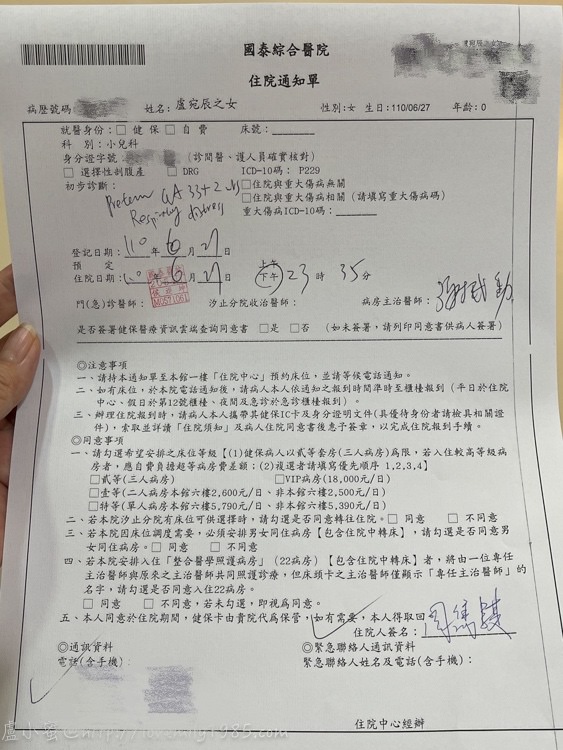 國泰綜合醫院
住院通知單
病歷號碼 姓名: 盧宛辰之女 性別:女 生日:110/06/27 年齡:0
就醫身份:□ 健保 □ 自費 床號:
科 別:小兒科
身分證字號 (診間醫、護人員確實核對)
□ 選擇性剖腹產 □ DRG ICD-10碼: P229
初步診斷: □住院與重大傷病無關
Preterm GA 33+2 wks □住院與重大傷病相關(請填寫重大傷病碼)
Respiratory distress 重大傷病ICD-10碼:
登記日期: 110 年 6 月 27 日
預 定
住院日期: 110 年 6 月 27 日 上午 下午 23 時 35 分
門(急)診醫師: 汐止分院收治醫師: 病房主治醫師:
是否簽署健保醫療資訊雲端查詢同意書 □是 □否 (如未簽署,請列印同意書供病人簽署)
◎注意事項
一、請持本通知單至本館一樓「住院中心」預約床位,並請等候電話通知。
二、如有床位,於本院電話通知後,請病人本人依通知之報到時間準時至櫃檯報到(平日於住院中
心、假日於第12號櫃檯、夜間及急診於急診櫃檯報到)。
三、辦理住院報到時,請病人本人攜帶其健保IC卡及身分證明文件(具優待身份者請檢具相關證
件),索取並詳讀「住院須知」及病人住院同意書後惠予簽章,以完成住院報到手續。
◎同意事項
一、請勾選希望安排之床位等級【(1)健保病人以貳等套房(三人病房)為限,若入住較高等級病
房者,應自費負擔超等病房費差額;(2)複選者請填寫優先順序 1,2,3,4】
□貳等(三人病房) □VIP病房(18,000元/日)
□壹等(二人病房本館六樓2,600元/日、非本館六樓2,500元/日)
□特等(單人病房本館六樓5,790元/日、非本館六樓5,390元/日)
二、若本院汐止分院有床位可供選擇時,請勾選是否同意轉住住院。□ 同意 □ 不同意
三、若本院因床位調度需要,必須安排男女同住病房【包含住院中轉床】,請勾選是否同意男
女同住病房。□ 同意 □ 不同意
四、若本院安排入住「整合醫學照護病房」(22病房)【包含住院中轉床】者,將由一位專任
主治醫師與原來之主治醫師共同照護診療,但床頭卡之主治醫師僅顯示「專任主治醫師」的
名字,請勾選是否同意入住22病房。
□ 同意 □ 不同意,若未勾選,即視為同意。
五、本人同意於住院期間,健保卡由貴院代為保管,如有需要,本人得取回
住院人簽名:
◎通訊資料 ◎緊急聯絡人通訊資料
電話(含手機) 緊急聯絡人姓名及電話(含手機):
住院中心經辦